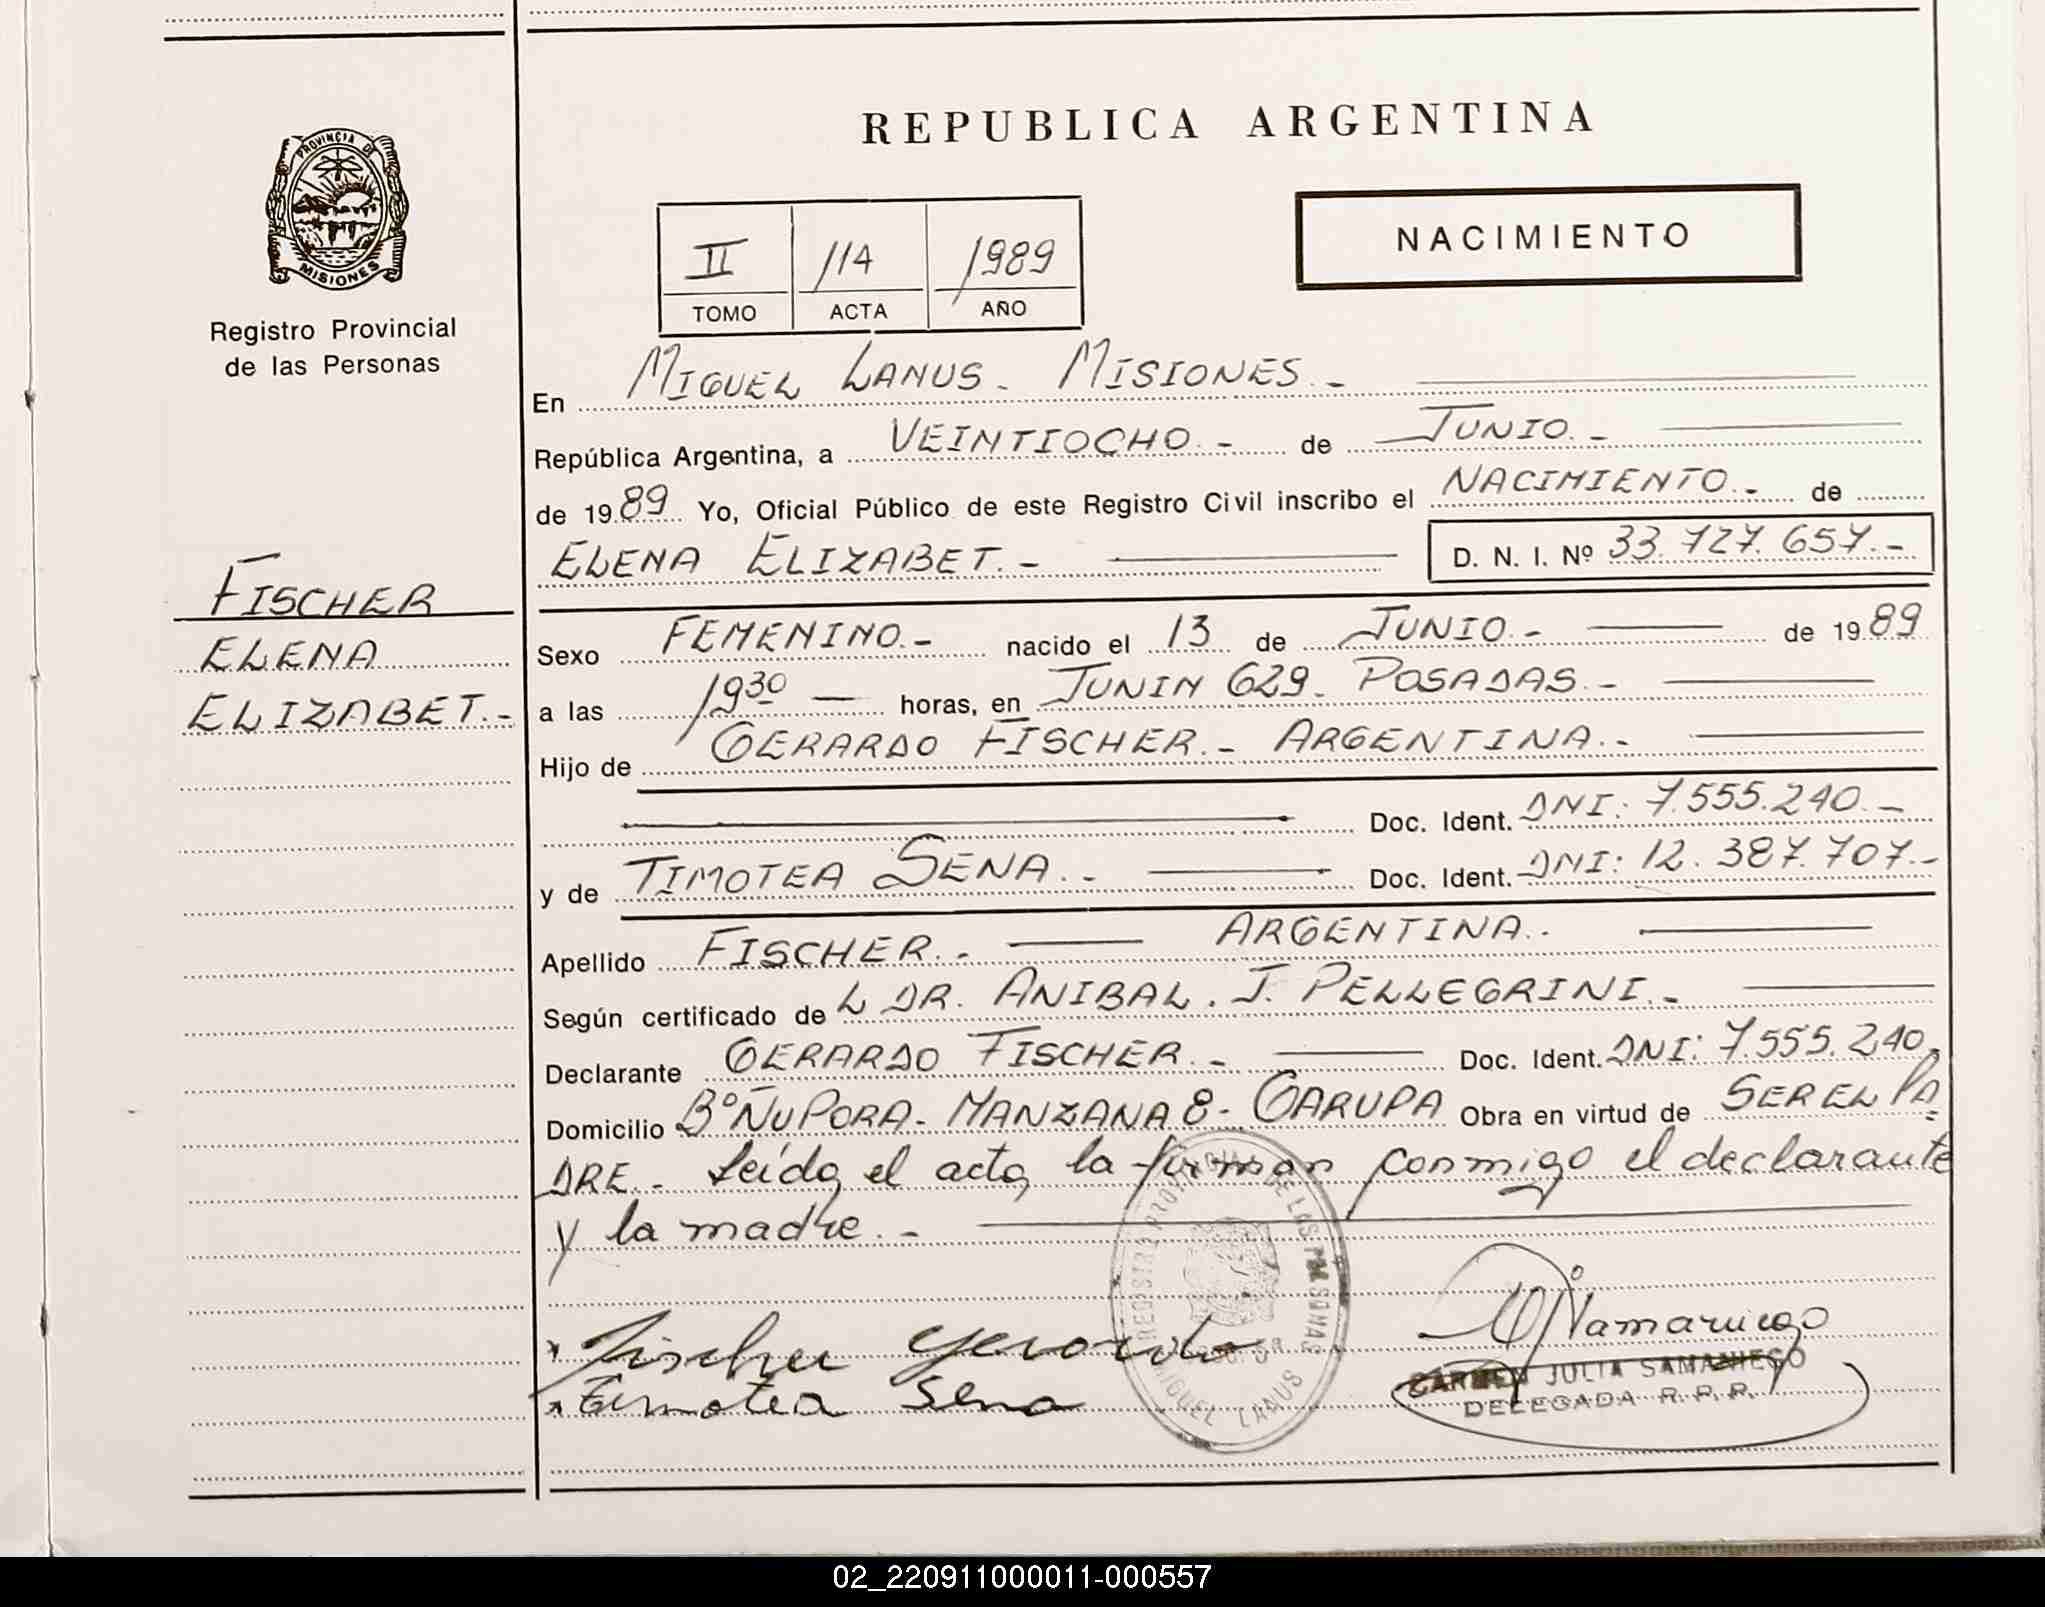 PROVINCIA DE
MISIONES
Registro Provincial
de las Personas
FISCHER
ELENA
ELIZABET.-
REPUBLICA ARGENTINA
II 114 1989
TOMO ACTA AÑO
NACIMIENTO
En MIGUEL LANUS - MISIONES.-
República Argentina, a VEINTIOCHO.- de JUNIO.-
de 1989 Yo, Oficial Público de este Registro Civil inscribo el NACIMIENTO.- de
ELENA ELIZABET.- D. N. I. Nº 33.727.657.-
Sexo FEMENINO.- nacido el 13 de JUNIO.- de 1989
a las 19 30 horas, en JUNIN 629 - POSADAS.-
Hijo de GERARDO FISCHER.- ARGENTINA.-
Doc. Ident. DNI: 7.555.240.-
y de TIMOTEA SENA.- Doc. Ident. DNI: 12.387.707.-
Apellido FISCHER.- ARGENTINA.-
Según certificado de L DR. ANIBAL. J. PELLEGRINI.-
Declarante GERARDO FISCHER.- Doc. Ident. DNI: 7.555.240.
Domicilio Bº ÑU PORA - MANZANA 8 - GARUPA Obra en virtud de SER EL PA
DRE.- Leída el acta, la firman conmigo el declarante
y la madre.-
REGISTRO PROVINCIAL DE LAS PERSONAS
MIGUEL LANUS
x Fischer Gerardo
x Timotea Sena
CJSamaniego
CARMEN JULIA SAMANIEGO
DELEGADA R.P.P.
02_220911000011-000557